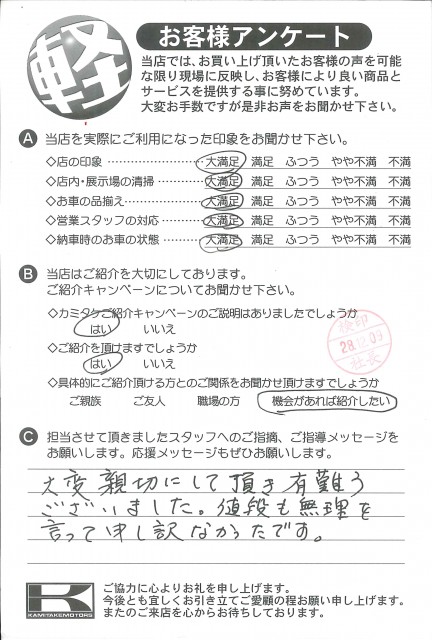 軽
お客様アンケート
当店では、お買い上げ頂いたお客様の声を可能
な限り現場に反映し、お客様により良い商品と
サービスを提供する事に努めています。
大変お手数ですが是非お声をお聞かせ下さい。
A 当店を実際にご利用になった印象をお聞かせ下さい。
◇店の印象 大満足 満足 ふつう やや不満 不満
◇店内・展示場の清掃 大満足 満足 ふつう やや不満 不満
◇お車の品揃え 大満足 満足 ふつう やや不満 不満
◇営業スタッフの対応 大満足 満足 ふつう やや不満 不満
◇納車時のお車の状態 大満足 満足 ふつう やや不満 不満
B 当店はご紹介を大切にしております。
ご紹介キャンペーンについてお聞かせ下さい。
◇カミタケご紹介キャンペーンのご説明はありましたでしょうか
はい いいえ
検印
28.12.09
社長
◇ご紹介を頂けますでしょうか
はい いいえ
◇具体的にご紹介頂ける方とのご関係をお聞かせ頂けますでしょうか
ご親族 ご友人 職場の方 機会があれば紹介したい
C 担当させて頂きましたスタッフへのご指摘、ご指導メッセージを
お願いします。応援メッセージもぜひお願いします。
大変親切にして頂き有難う
ございました。値段も無理を
言って申し訳なかったです。
K
KAMITAKEMOTORS
ご協力に心よりお礼を申し上げます。
今後とも宜しくお引き立てご愛顧の程お願い申し上げます。
またのご来店を心からお待ちしております。